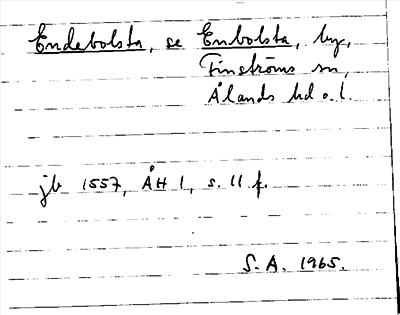 Endebolsta, se Enbolsta, by,
Finströms sn,
Ålands hd o. l.
jb 1557, ÅH 1, s. 11 f.
S.A. 1965.